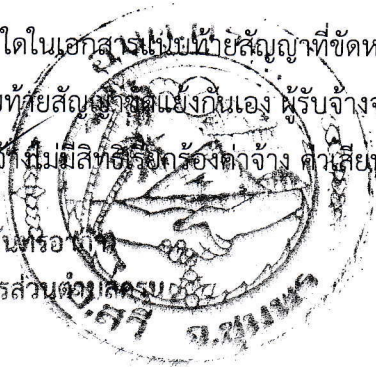 ใดในเอกสารแนบท้ายสัญญาที่ขัดห
ท้ายสัญญาขัดแย้งกันเอง ผู้รับจ้างจ
จ้างไม่มีสิทธิเรียกร้องค่าจ้าง ค่าเสีย
รส่วนตำบลครน
จ.ชุมพร